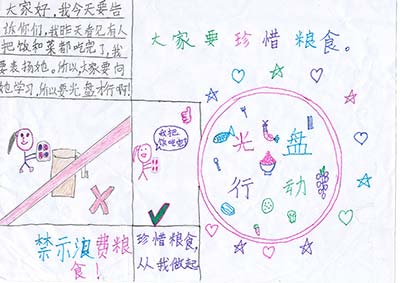 大家好,我今天要告
诉你们,我昨天看见有人
把饭和菜都吃完了,我
要表扬她。所以,大家要向
她学习,所以要光盘才行啊!
大家要珍惜粮食。
光盘
行动
我把
饭吃啦!
禁示浪费粮
食!
珍惜粮食,
从我做起